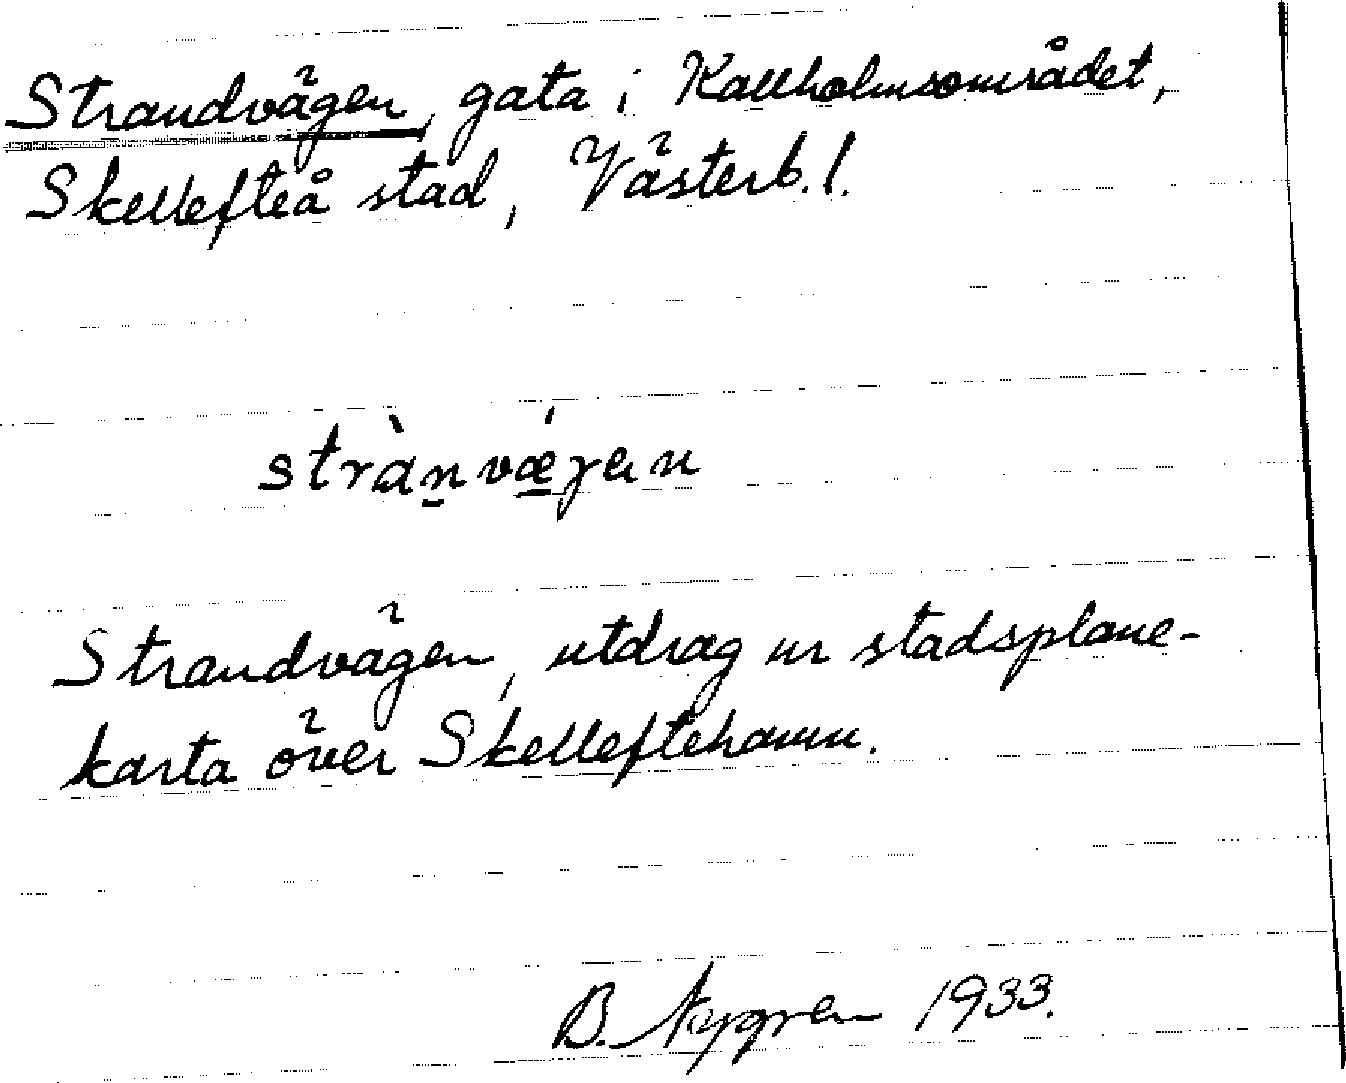 Strandvägen, gata i Kallholmsområdet,
Skellefteå stad, Västerb. l.
stràn̠vǽ̠gen
Strandvägen, utdrag ur stadsplane-
karta över Skelleftehamn.
B. Nygren 1933.